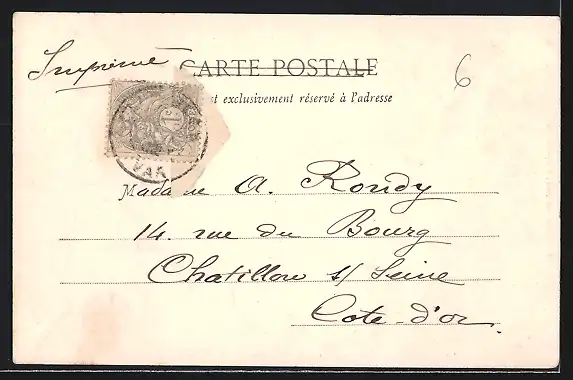 Imprimé
CARTE POSTALE
6
st exclusivement réservé à l'adresse
1c
VAR
Madame A. Rondy
14. rue du Bourg
Chatillon s/ Seine
Cote-d'or.